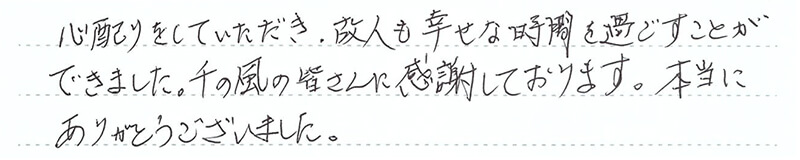 心配りをしていただき、故人も幸せな時間を過ごすことが
できました。千の風の皆さんに感謝しております。本当に
ありがとうございました。